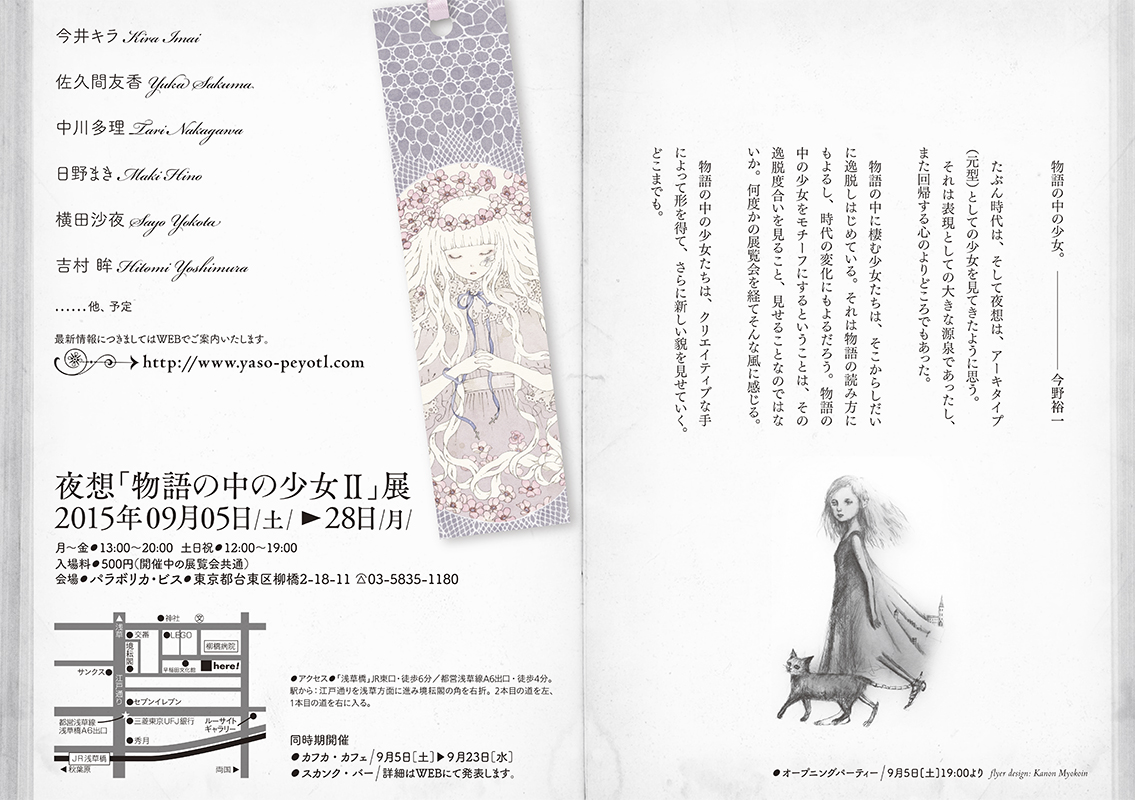 今井キラ Kira Imai
佐久間友香 Yuka Sakuma
中川多理 Tari Nakagawa
日野まき Maki Hino
横田沙夜 Sayo Yokota
吉村 眸 Hitomi Yoshimura
……他、予定
最新情報につきましてはWEBでご案内いたします。
http://www.yaso-peyotl.com
夜想「物語の中の少女Ⅱ」展
2015年09月05日/土/ ▶28日/月/
月〜金●13:00〜20:00 土日祝●12:00〜19:00
入場料●500円(開催中の展覧会共通)
会場●パラボリカ・ビス●東京都台東区柳橋2-18-11 ☎03-5835-1180
▲浅草
●神社
文
●交番
●LEGO
境耘閣
柳橋病院
早稲田文化館
here!
サンクス●
江戸通り
●セブンイレブン
都営浅草線
浅草橋A6出口
●三菱東京UFJ銀行
ルーサイト
ギャラリー
●秀月
JR浅草橋
◀秋葉原
両国▶
●アクセス●「浅草橋」JR東口・徒歩6分/都営浅草線A6出口・徒歩4分。
駅から:江戸通りを浅草方面に進み境耘閣の角を右折。2本目の道を左、
1本目の道を右に入る。
同時期開催
●カフカ・カフェ/9月5日[土]▶9月23日[水]
●スカンク・バー/詳細はWEBにて発表します。
物語の中の少女。――――今野裕一
たぶん時代は、そして夜想は、アーキタイプ
(元型)としての少女を見てきたように思う。
それは表現としての大きな源泉であったし、
また回帰する心のよりどころでもあった。
物語の中に棲む少女たちは、そこからしだい
に逸脱しはじめている。それは物語の読み方に
もよるし、時代の変化にもよるだろう。物語の
中の少女をモチーフにするということは、その
逸脱度合いを見ること、見せることなのではな
いか。何度かの展覧会を経てそんな風に感じる。
物語の中の少女たちは、クリエイティブな手
によって形を得て、さらに新しい貌を見せていく。
どこまでも。
●オープニングパーティー/9月5日[土]19:00より flyer design: Kanon Myokoin